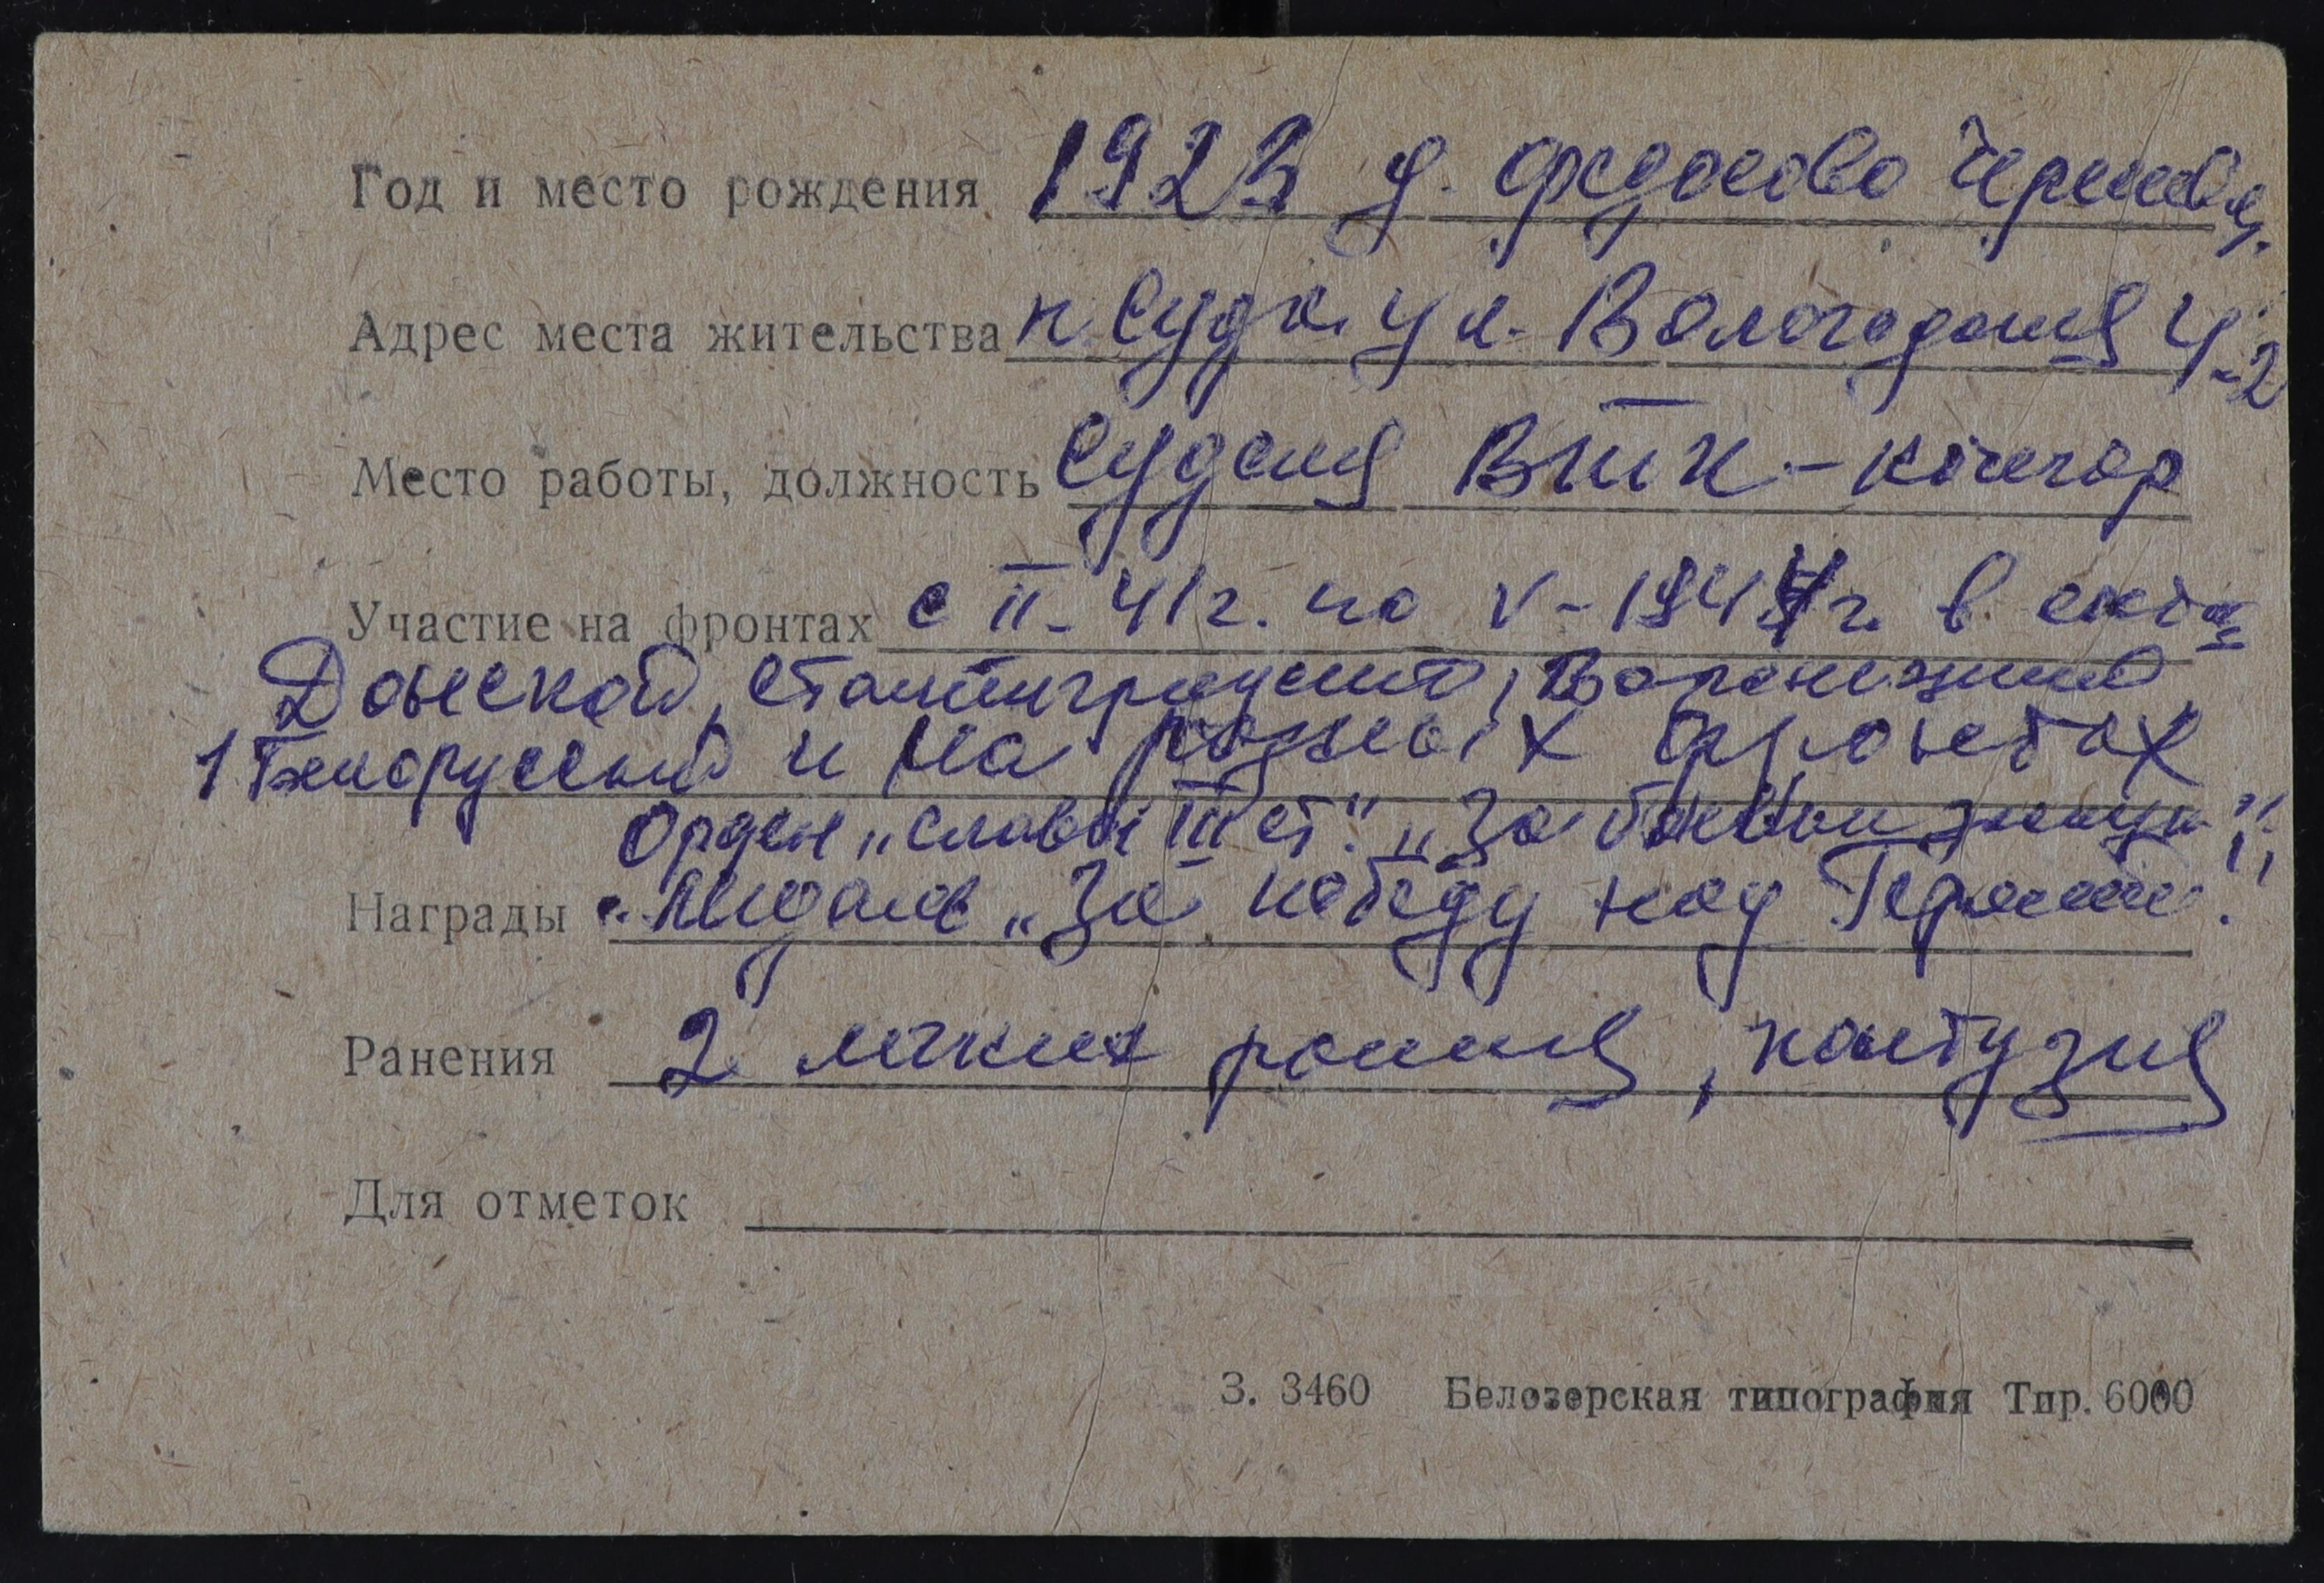 Год и место рождения 1923 д. Федосово Черепов.
Адрес места жительства п. Суда ул. Вологодская 4-2
Место работы, должность Судская ВТК - кочегар
Участие на фронтах с II-41г. по V-1947г. в
Донской, Сталинградский, Воронежский
1 Белорусский и на разных фронтах
Орден „Славы III ст." „За боевые заслуги"
Награды Медаль „За победу над Германией."
Ранения 2 легких ранения, контузия
Для отметок
З. 3460 Белозерская типография Тир. 6000